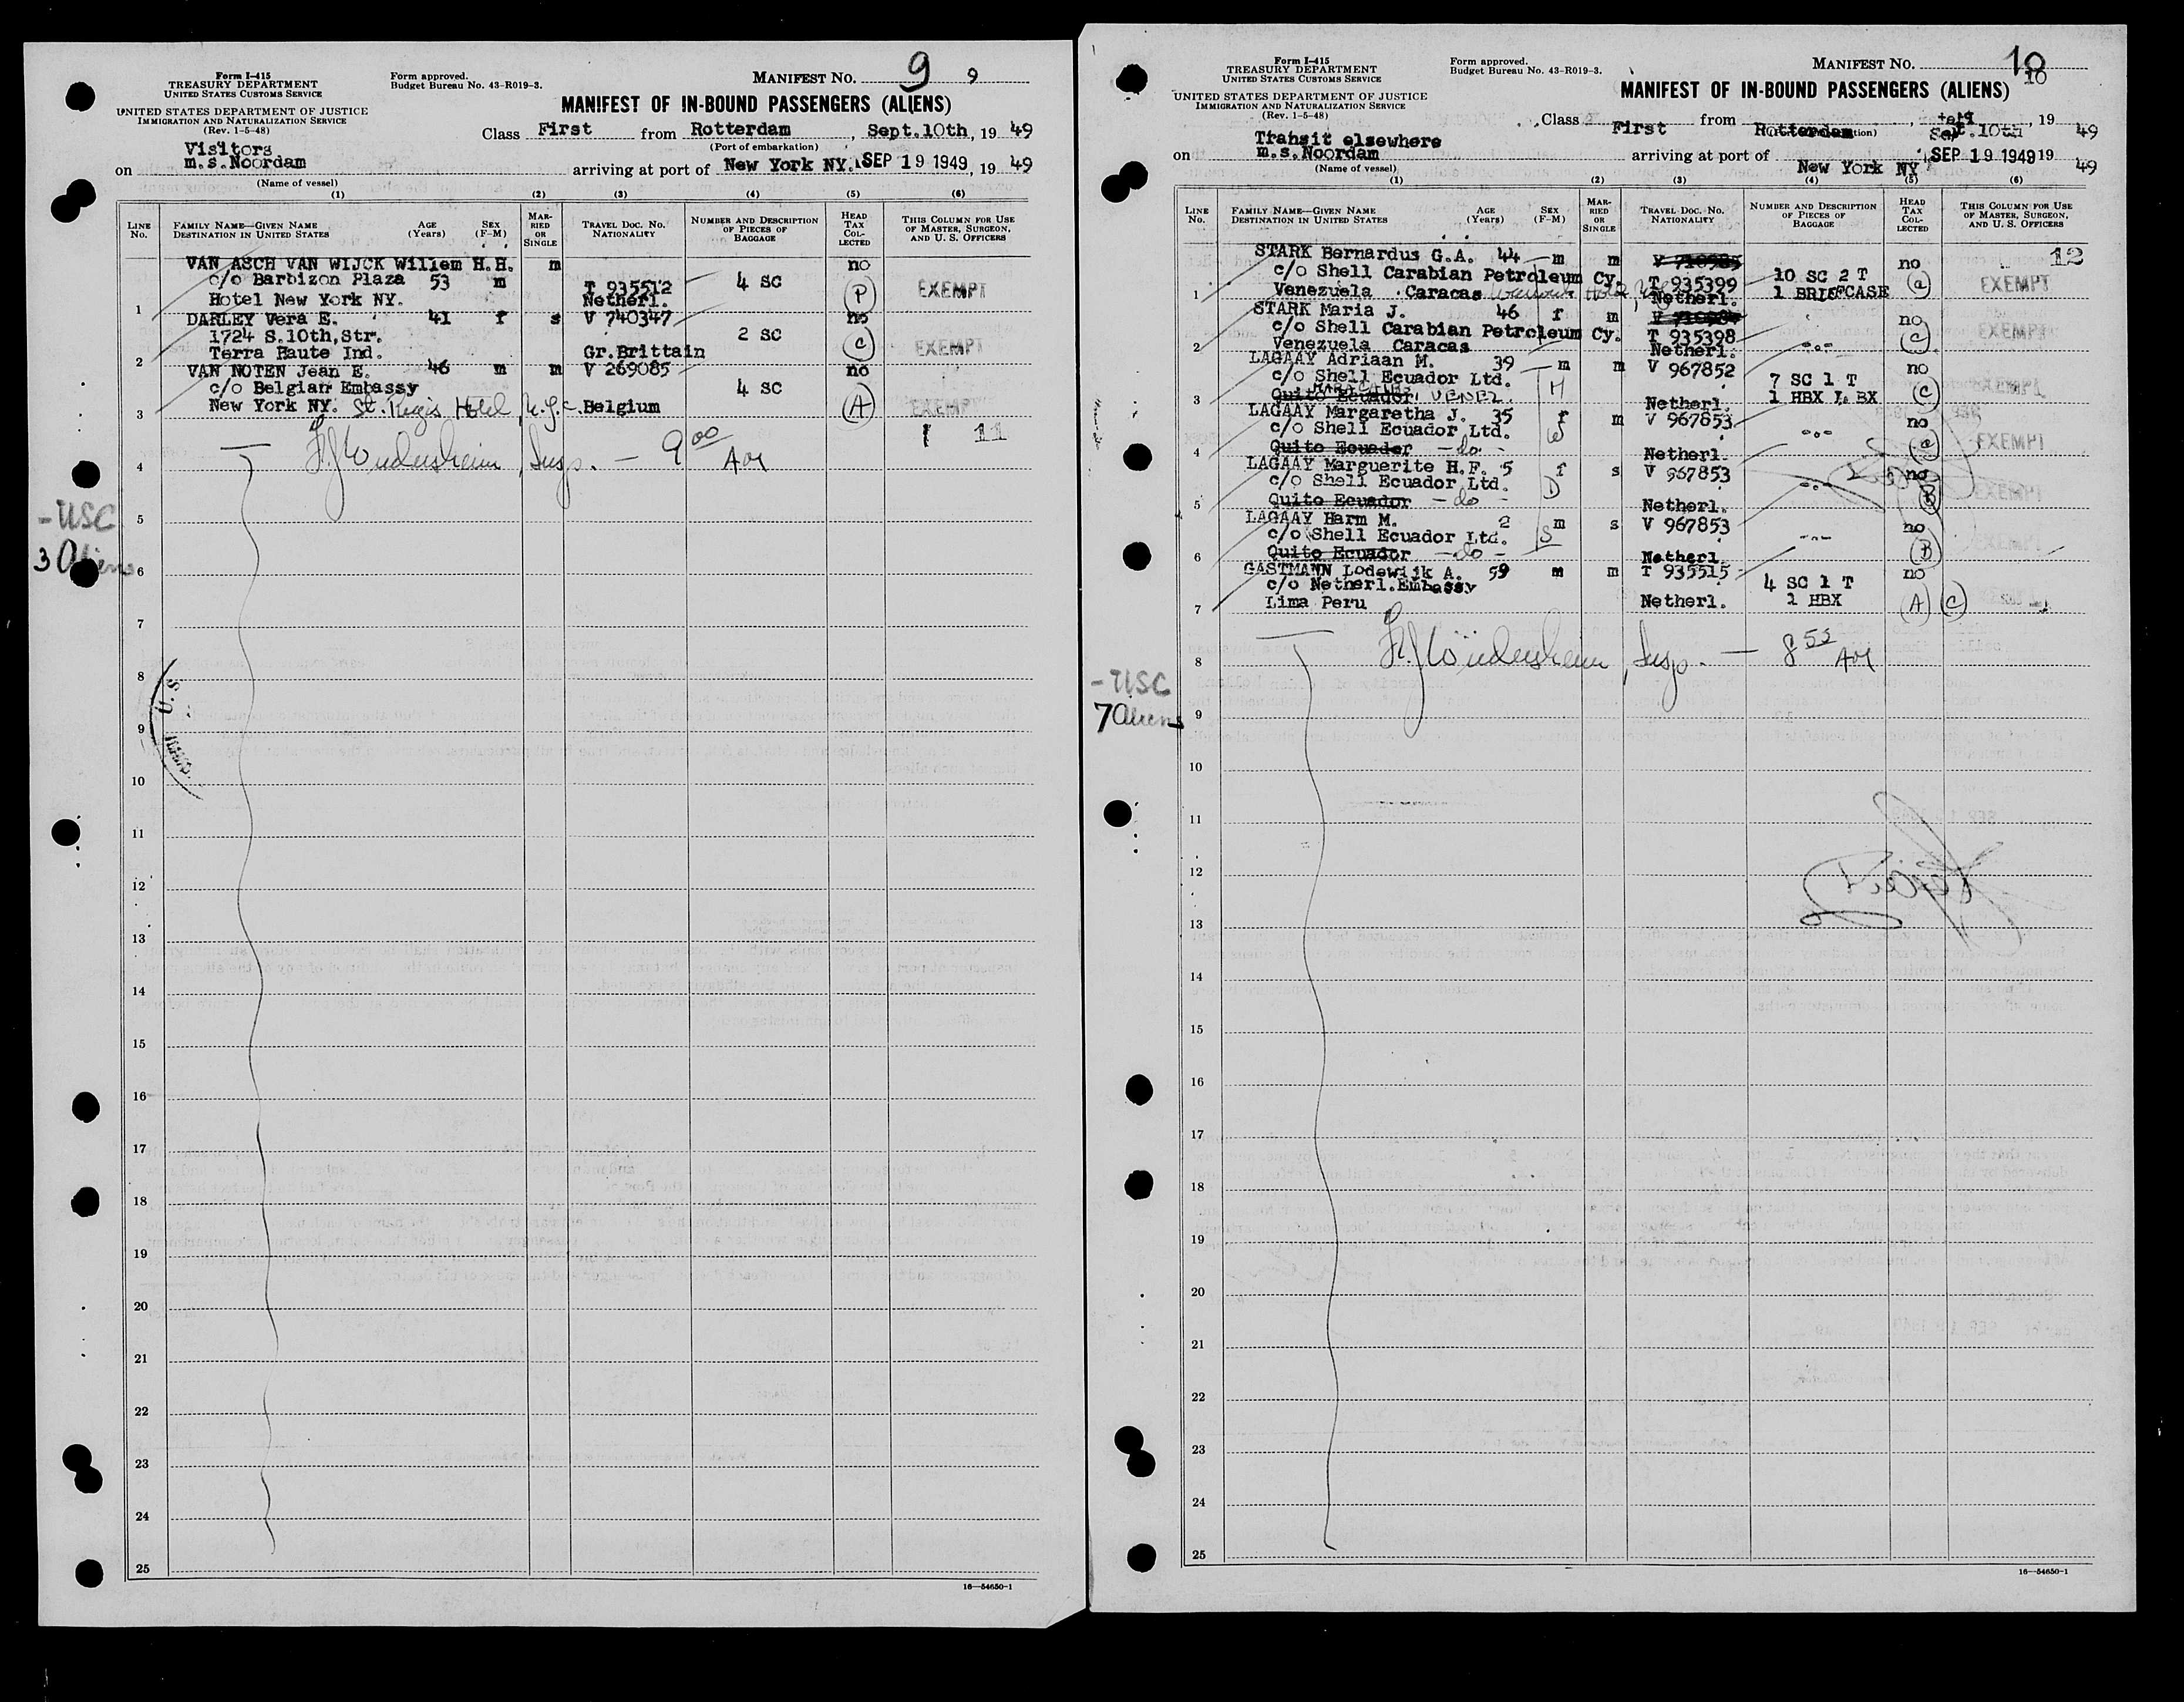 Form I-415
TREASURY DEPARTMENT
UNITED STATES CUSTOMS SERVICE
UNITED STATES DEPARTMENT OF JUSTICE
IMMIGRATION AND NATURALIZATION SERVICE
(Rev. 1-5-48)
Form approved.
Budget Bureau No. 43-R019-3.
MANIFEST NO. 9 9
MANIFEST OF IN-BOUND PASSENGERS (ALIENS)
Class First from Rotterdam, Sept.10th, 19 49
(Port of embarkation)
Visitors
on m.s.Noordam arriving at port of New York NY. SEP 19 1949, 19 49
(Name of vessel)
(1) (2) (3) (4) (5) (6)
LINE No. FAMILY NAME—GIVEN NAME DESTINATION IN UNITED STATES AGE (Years) SEX (F-M) MARRIED OR SINGLE TRAVEL DOC. NO. NATIONALITY NUMBER AND DESCRIPTION OF PIECES OF BAGGAGE HEAD TAX COLLECTED THIS COLUMN FOR USE OF MASTER, SURGEON, AND U. S. OFFICERS
VAN ASCH VAN WIJCK Willem H.H. m no
c/o Barbizon Plaza 53 m T 935512 4 SC P EXEMPT
1 Hotel New York NY. Netherl.
DARLEY Vera E. 41 f s V 740347 no
1724 S.10th,Str. 2 SC C EXEMPT
2 Terra Haute Ind. Gr.Brittain
VAN NOTEN Jean E. 46 m m V 269085 no
c/o Belgian Embassy 4 SC
3 New York NY. St. Regis Hotel N.Y.C. Belgium A EXEMPT
11
4 Insp. — 9 00 AM
- USC
3 Aliens
5
6
7
8
9
U. S.
10
11
12
13
14
15
16
17
18
19
20
21
22
23
24
25
16—54650-1
Form I-415
TREASURY DEPARTMENT
UNITED STATES CUSTOMS SERVICE
UNITED STATES DEPARTMENT OF JUSTICE
IMMIGRATION AND NATURALIZATION SERVICE
(Rev. 1-5-48)
Form approved.
Budget Bureau No. 43-R019-3.
MANIFEST NO. 10
10
MANIFEST OF IN-BOUND PASSENGERS (ALIENS)
Class First from Rotterdam, Sept.10th, 19 49
Transit elsewhere
on m.s.Noordam arriving at port of New York NY SEP 19 1949 19 49
(Name of vessel)
(1) (2) (3) (4) (5) (6)
LINE No. FAMILY NAME—GIVEN NAME DESTINATION IN UNITED STATES AGE (Years) SEX (F-M) MARRIED OR SINGLE TRAVEL DOC. NO. NATIONALITY NUMBER AND DESCRIPTION OF PIECES OF BAGGAGE HEAD TAX COLLECTED THIS COLUMN FOR USE OF MASTER, SURGEON, AND U. S. OFFICERS
STARK Bernardus G.A. 44 m m V 710985 no 12
c/o Shell Carabian Petroleum Cy. T 935399 10 SC 2 T a EXEMPT
1 Venezuela Caracas Netherl. 1 BRIEFCASE
STARK Maria J. 46 f m no
c/o Shell Carabian Petroleum Cy. T 935398 C EXEMPT
2 Venezuela Caracas Netherl. -o-
LAGAAY Adriaan M. 39 m m V 967852 no
c/o Shell Ecuador Ltd. H 7 SC 1 T EXEMPT
3 Quito Ecuador MARACAIBO VENEZ. Netherl. 1 HBX 1 BX C
LAGAAY Margaretha J. 35 f m V 967853 no
c/o Shell Ecuador Ltd. -o- EXEMPT
4 Quito Ecuador - do - Netherl. a
LAGAAY Marguerite H.F. 5 f s V 967853 no
c/o Shell Ecuador Ltd. D -o- EXEMPT
5 Quito Ecuador - do - Netherl. B
LAGAAY Harm M. 2 m s V 967853 no
c/o Shell Ecuador Ltd. S -o- EXEMPT
6 Quito Ecuador - do - Netherl B
GASTMANN Lodewijk A. 59 m m T 935515 no
c/o Netherl.Embassy 4 SC 1 T
7 Lima Peru Netherl. 1 HBX A C
8 Insp. — 8 55 AM
- USC
7 Aliens
9
10
11
12
13
14
15
16
17
18
19
20
21
22
23
24
25
16—54650-1